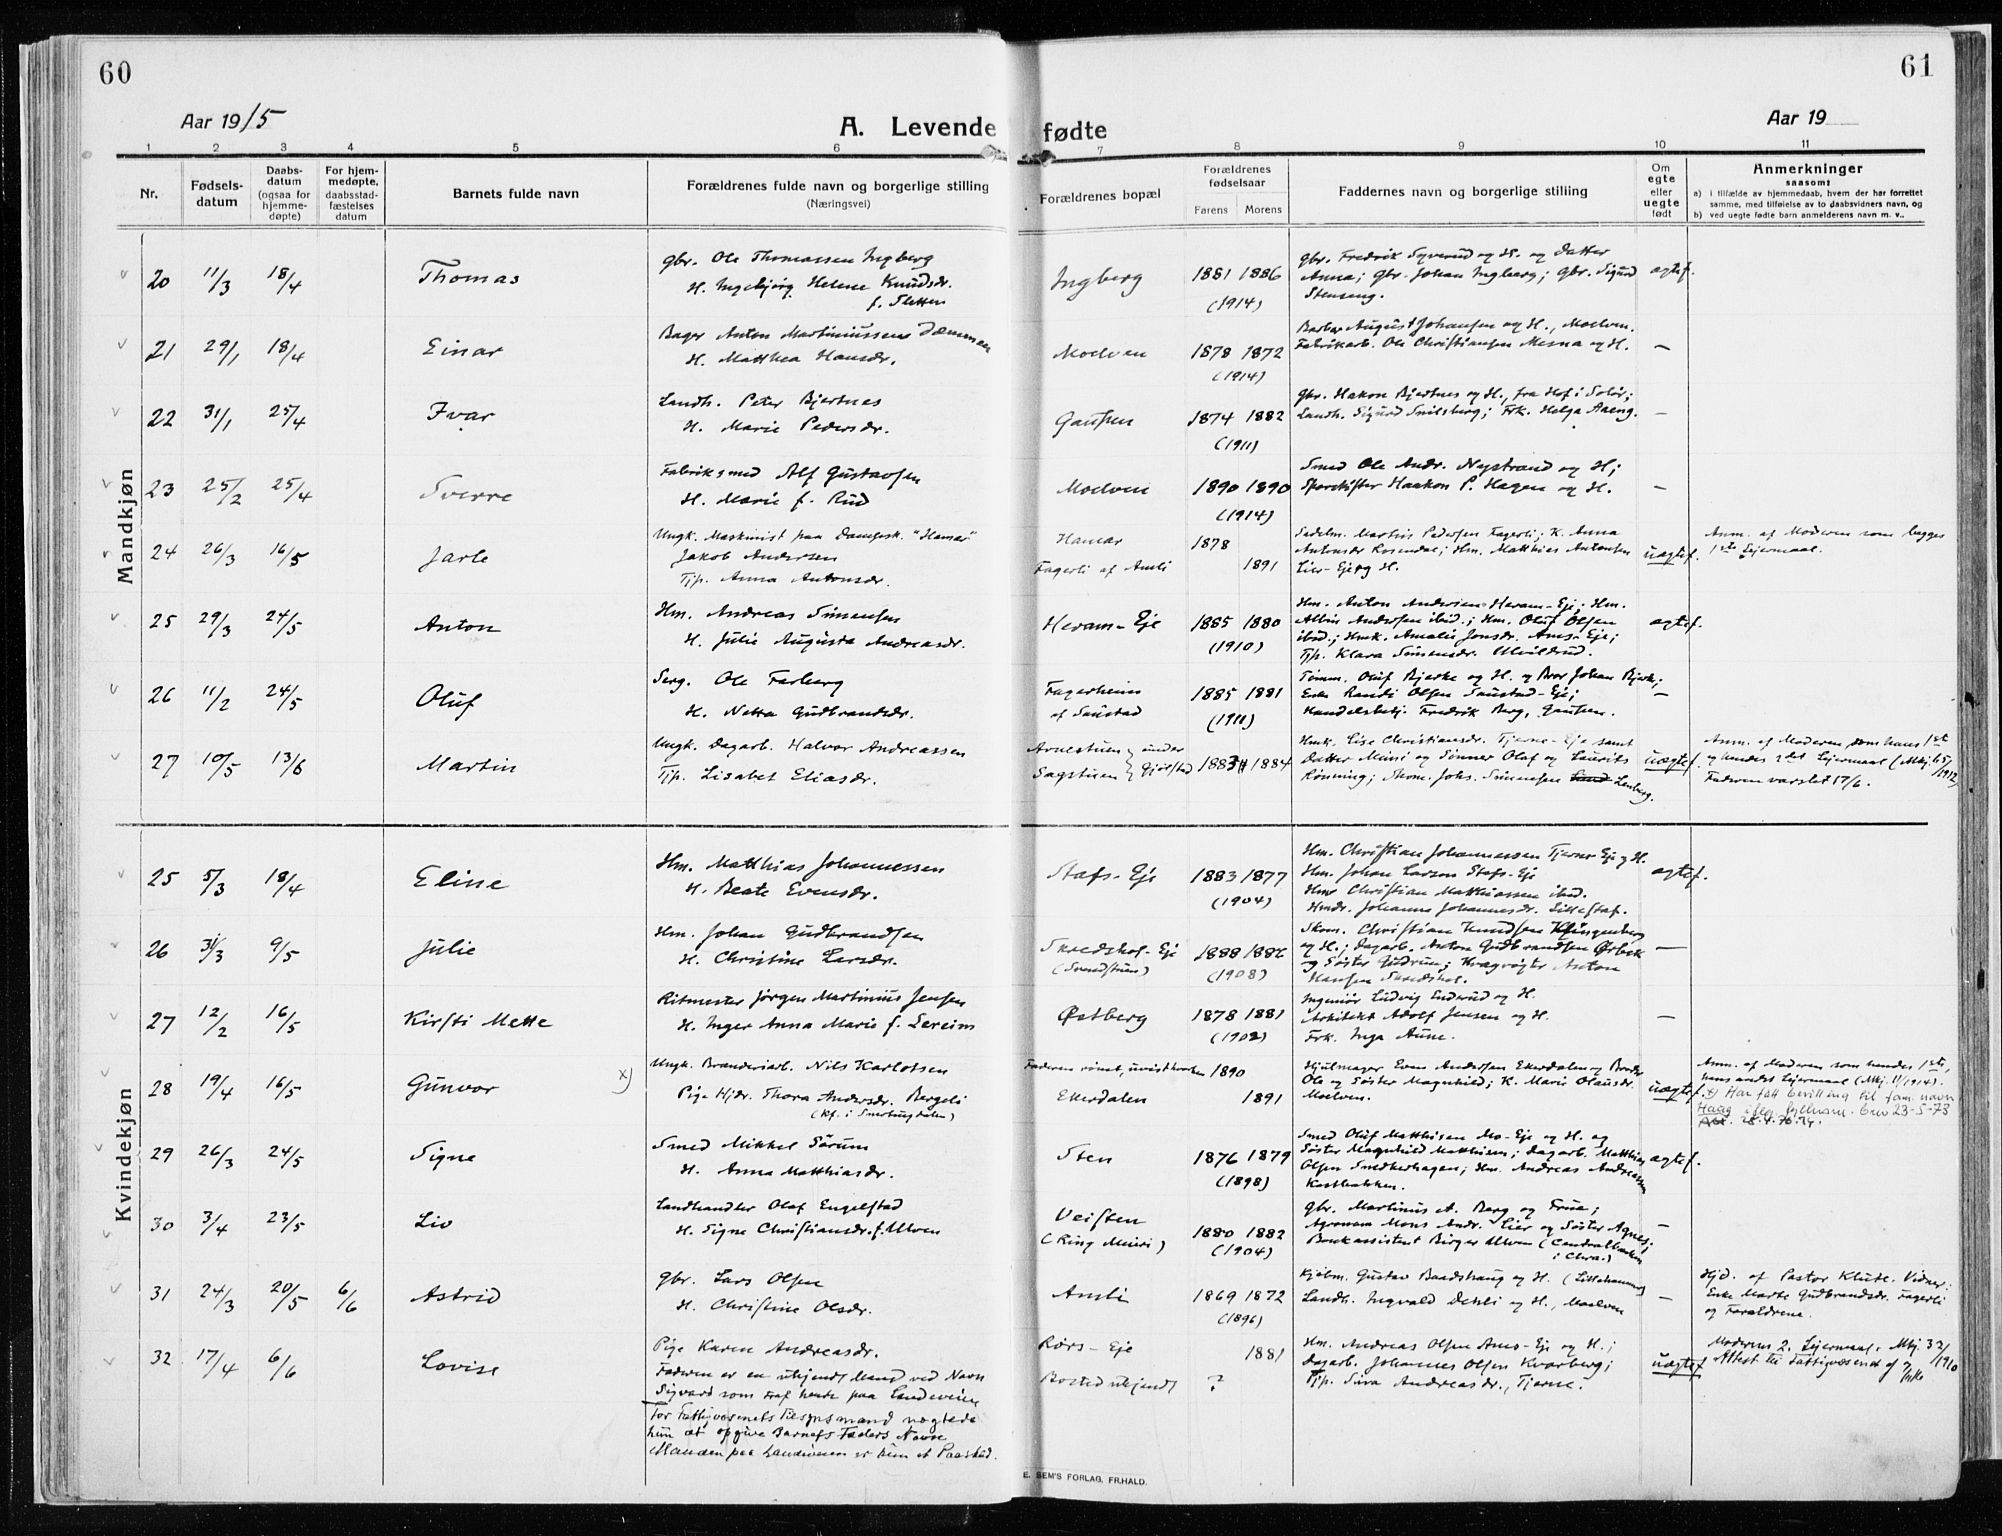 60
61
Aar 1915
A. Levende fødte
Aar 19
1 2 3 4 5 6 7 8 9 10 11
Nr.
Fødsels-
datum
Daabs-
datum
(ogsaa for
hjemme-
døpte)
For hjem-
medøpte,
daabsstad-
fæstelses
datum
Barnets fulde navn
Forældrenes fulde navn og borgerlige stilling
(Næringsvei)
Forældrenes bopæl
Forældrenes
fødselsaar
Farens Morens
Faddernes navn og borgerlige stilling
Om
egte
eller
uegte
født
Anmerkninger
saasom:
a) i tilfælde av hjemmedaab, hvem der har forrettet
samme, med tilføielse av to daabsvidners navn, og
b) ved uegte fødte barn anmelderens navn m. v..
Mandkjøn
20 11/3 18/4 Thomas
Gbr. Ole Thomassen Ingberg
H. Ingebjørg Helene Knudsdr.
f. Sletten
Ingberg 1881 1886
(1914)
Gbr. Fredrik Syverud og H. og Datter
Anna; Gbr. Johan Ingberg; Gbr. Sigurd
Stenseng.
ægtef.
21 29/1 18/4 Einar
Bager Anton Martiniussen
H. Matthea Hansdr.
Moelven 1878 1872
(1914)
Barber August Johansen og H., Moelven.
Fabrikarb. Ole Christiansen Mesna og H.
—
22 31/1 25/4 Ivar
Landh. Peter Bjertnes
H. Marie Pedersdr.
Gaupen 1874 1882
(1911)
Gbr. Hakon Bjertnes og H., fra Hof i Solør;
Landh. Sigurd Snilsberg; Frk. Helga Aaeng.
—
23 25/2 25/4 Sverre
Fabriksmed Alf Gustavsen
H. Marie f. Rud
Moelven 1890 1890
(1914)
Smed Ole Andr. Nystrand og H;
Haakon P. Hagen og H.
—
24 26/3 16/5 Jarle
Ungk. Maskinist paa Dampsk. "Hamar"
Jakob Andersen
Tjp. Anna Antonsdr.
Hamar 1878
Fagerli af Amli 1891
Sadelm. Martin Pedersen Fagerli; K. Anna
Antonsdr Rosendal; Hm. Matthias Antonsen
Lier-Eje og H.
uægtef.
Anm. af Moderen som begges
1ste Lejermaal.
25 29/3 24/5 Anton
Hm. Andreas Simensen
H. Julie Augusta Andreasdr.
Heram-Eje 1885 1880
(1910)
Hm. Anton Andersen Heram-Eje; Hm.
Albin Andersen ibid.; Hm. Oluf Olsen
ibid.; Hmk. Amalie Jonsdr. Ams-Eje;
Tjp. Klara Simensdr. Ulvildrud.
ægtef.
26 11/2 24/5 Oluf
Serg. Ole Farberg
H. Netta Gudbrandsdr.
Fagerheim 1885 1881
af Saustad (1911)
Tømm. Oluf Bjerke og H. og Bror Johan Bjerk;
Enke Randi Olsen Saustad-Eje;
Handelsbetj. Fredrik Berg, Gaupen.
—
27 10/5 13/6 Martin
Ungk. Dagarb. Halvor Andreassen
Tjp. Lisabet Eliasdr.
Arnestuen } under
Sagstuen } Gjølstad 1883 1884
Hmk. Lise Christiansdr. Tjerne-Eje samt
Datter Mimi og Sønner Olaf og Laurits
Rønning; Skom. Johs. Simensen Lenberg.
uægtef.
Anm. af Moderen som hans 1ste
og hendes 2det Lejermaal (Mkj. 65/1912)
Faderen varslet 17/6.
Kvindekjøn
25 5/3 18/4 Eline
Hm. Matthias Johannessen
H. Beate Evensdr.
Stafs-Eje 1883 1877
(1904)
Hm. Christian Johannessen Tjerne Eje og H.
Hm. Johan Larson Stafs-Eje
Hm. Christian Matthiassen ibid.
Hmdr. Johanne Johannesdr. Lillestaf.
ægtef.
26 31/3 9/5 Julie
Hm. Johan Gudbrandsen
H. Christine Larsdr.
Skredshol-Eje 1888 1886
(Svendstuen) (1908)
Skom. Christian Knudsen Klüngenberg
og H.; Dagarb. Anton Gudbrandsen Ørbek
og Søster Gudrun; Kvægrøgter Anton
Hansen Skredshol.
—
27 12/2 16/5 Kirsti Mette
Ritmester Jørgen Martinius Jensen
H. Inger Anna Marie f. Sereim
Østberg 1878 1881
(1902)
Ingeniør Ludvig Enderud og H.
Arkitekt Adolf Jensen og H.
Frk. Inga Aune.
—
28 19/4 16/5 Gunvor x)
Ungk. Branderiarb. Nils Karlotsen
Pige Hjdr. Thora Andersdr. Bergeli
(kf. i Smedungdalen)
Faderen rømt, uvist hvorhen 1890
Ekerdalen 1891
Hjulmager Even Andersen Ekerdalen og Broder
Ole og Søster Magnhild; K. Marie Olausdr.
Moelven.
uægtef.
Anm. af Moderen som hendes 1ste,
hans andet Lejermaal (Mkj. 1/1914).
x) Har fått bevilling til fam. navn
Haag iflg. fylkesm. brev 23-5-73
28.4.76.
29 26/3 24/5 Signe
Smed Mikkel Sørum
H. Anna Matthiasdr.
Sten 1876 1879
(1898)
Smed Oluf Matthisen Mo-Eje og H. og
Søster Magnhild Matthisen; Dagarb. Matthias
Olsen Smedkerhagen; Hm. Andreas Andreassen
Kostbakken.
ægtef.
30 3/4 23/5 Liv
Landhandler Olaf Engelstad
H. Signe Christiansdr. f. Ulven
Veisten 1880 1882
(Ring Meieri) (1904)
Gbr. Martinus A. Berg og Frue;
Agronom Mons Andr. Lier og Søster Agnes;
Bankassistent Birger Ulven (Centralbanken
i Chra.)
—
31 24/3 20/5 6/6 Astrid
Gbr. Lars Olsen
H. Christine Olsdr.
Amli 1869 1872
(1896)
Kjøbm. Gustav Baadshaug og H. (Lillehammer)
Landh. Ingvald Dehli og H., Moelven
—
Hjd. af Pastor Klute. Vidner:
Enke Marte Gudbrandsdr. Fagerli
og Forældrene.
32 17/4 6/6 Lovise
Pige Karen Andreasdr.
Faderen er en ukjendt Mand ved Navn
Sigvard som traf hende paa Landeveien
For Fattigvæsenets Tilsynsmand nægtede
hun at opgive Barnets Faders Navn
Manden paa Landeveien er kun et Paaskud.
Rørs-Eje 1881
Bosted ukjendt ?
Hm. Andreas Olsen Ams-Eje og H.;
Dagarb. Johannes Olsen Kvarberg;
Tjp. Sina Andreasdr., Tjerne.
uægtef.
Moderens 2. Lejermaal. Mkj. 32/1910
Attest til Fattigvæsenet
E. SEM'S FORLAG, FR.HALD.